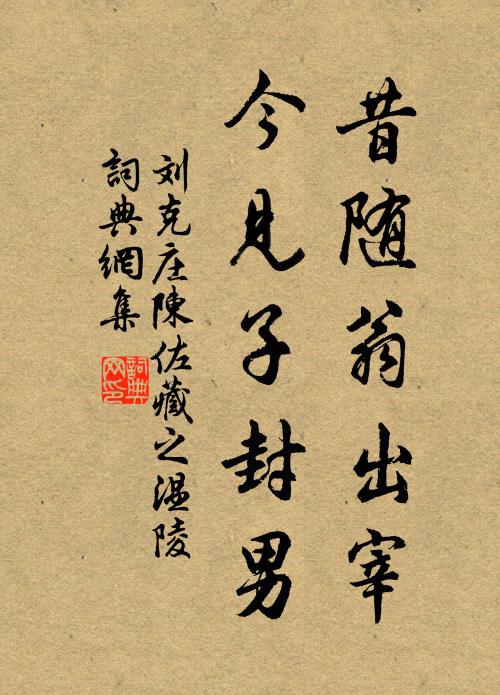 昔随翁出宰
今見子封男
刘克庄陳佐藏之温陵
詞典網集
詞典
网印